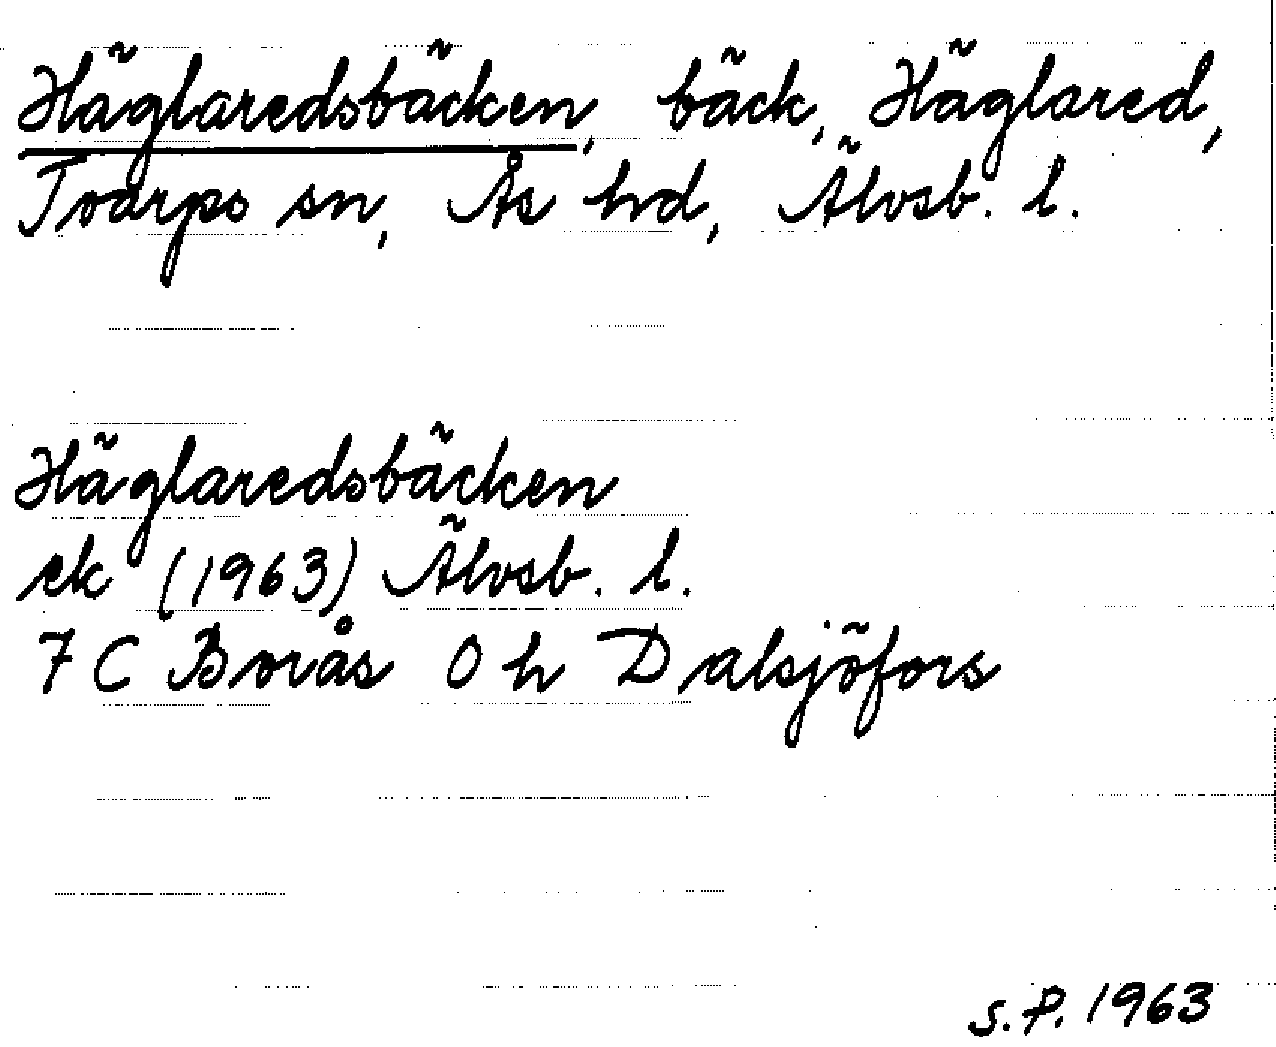 Häglaredsbäcken, bäck, Häglared,
Tvärps sn, Ås hd, Älvsb. l.
Häglaredsbäcken
ek (1963) Älvsb. l.
7 C Borås 0 h Dalsjöfors
S.P. 1963